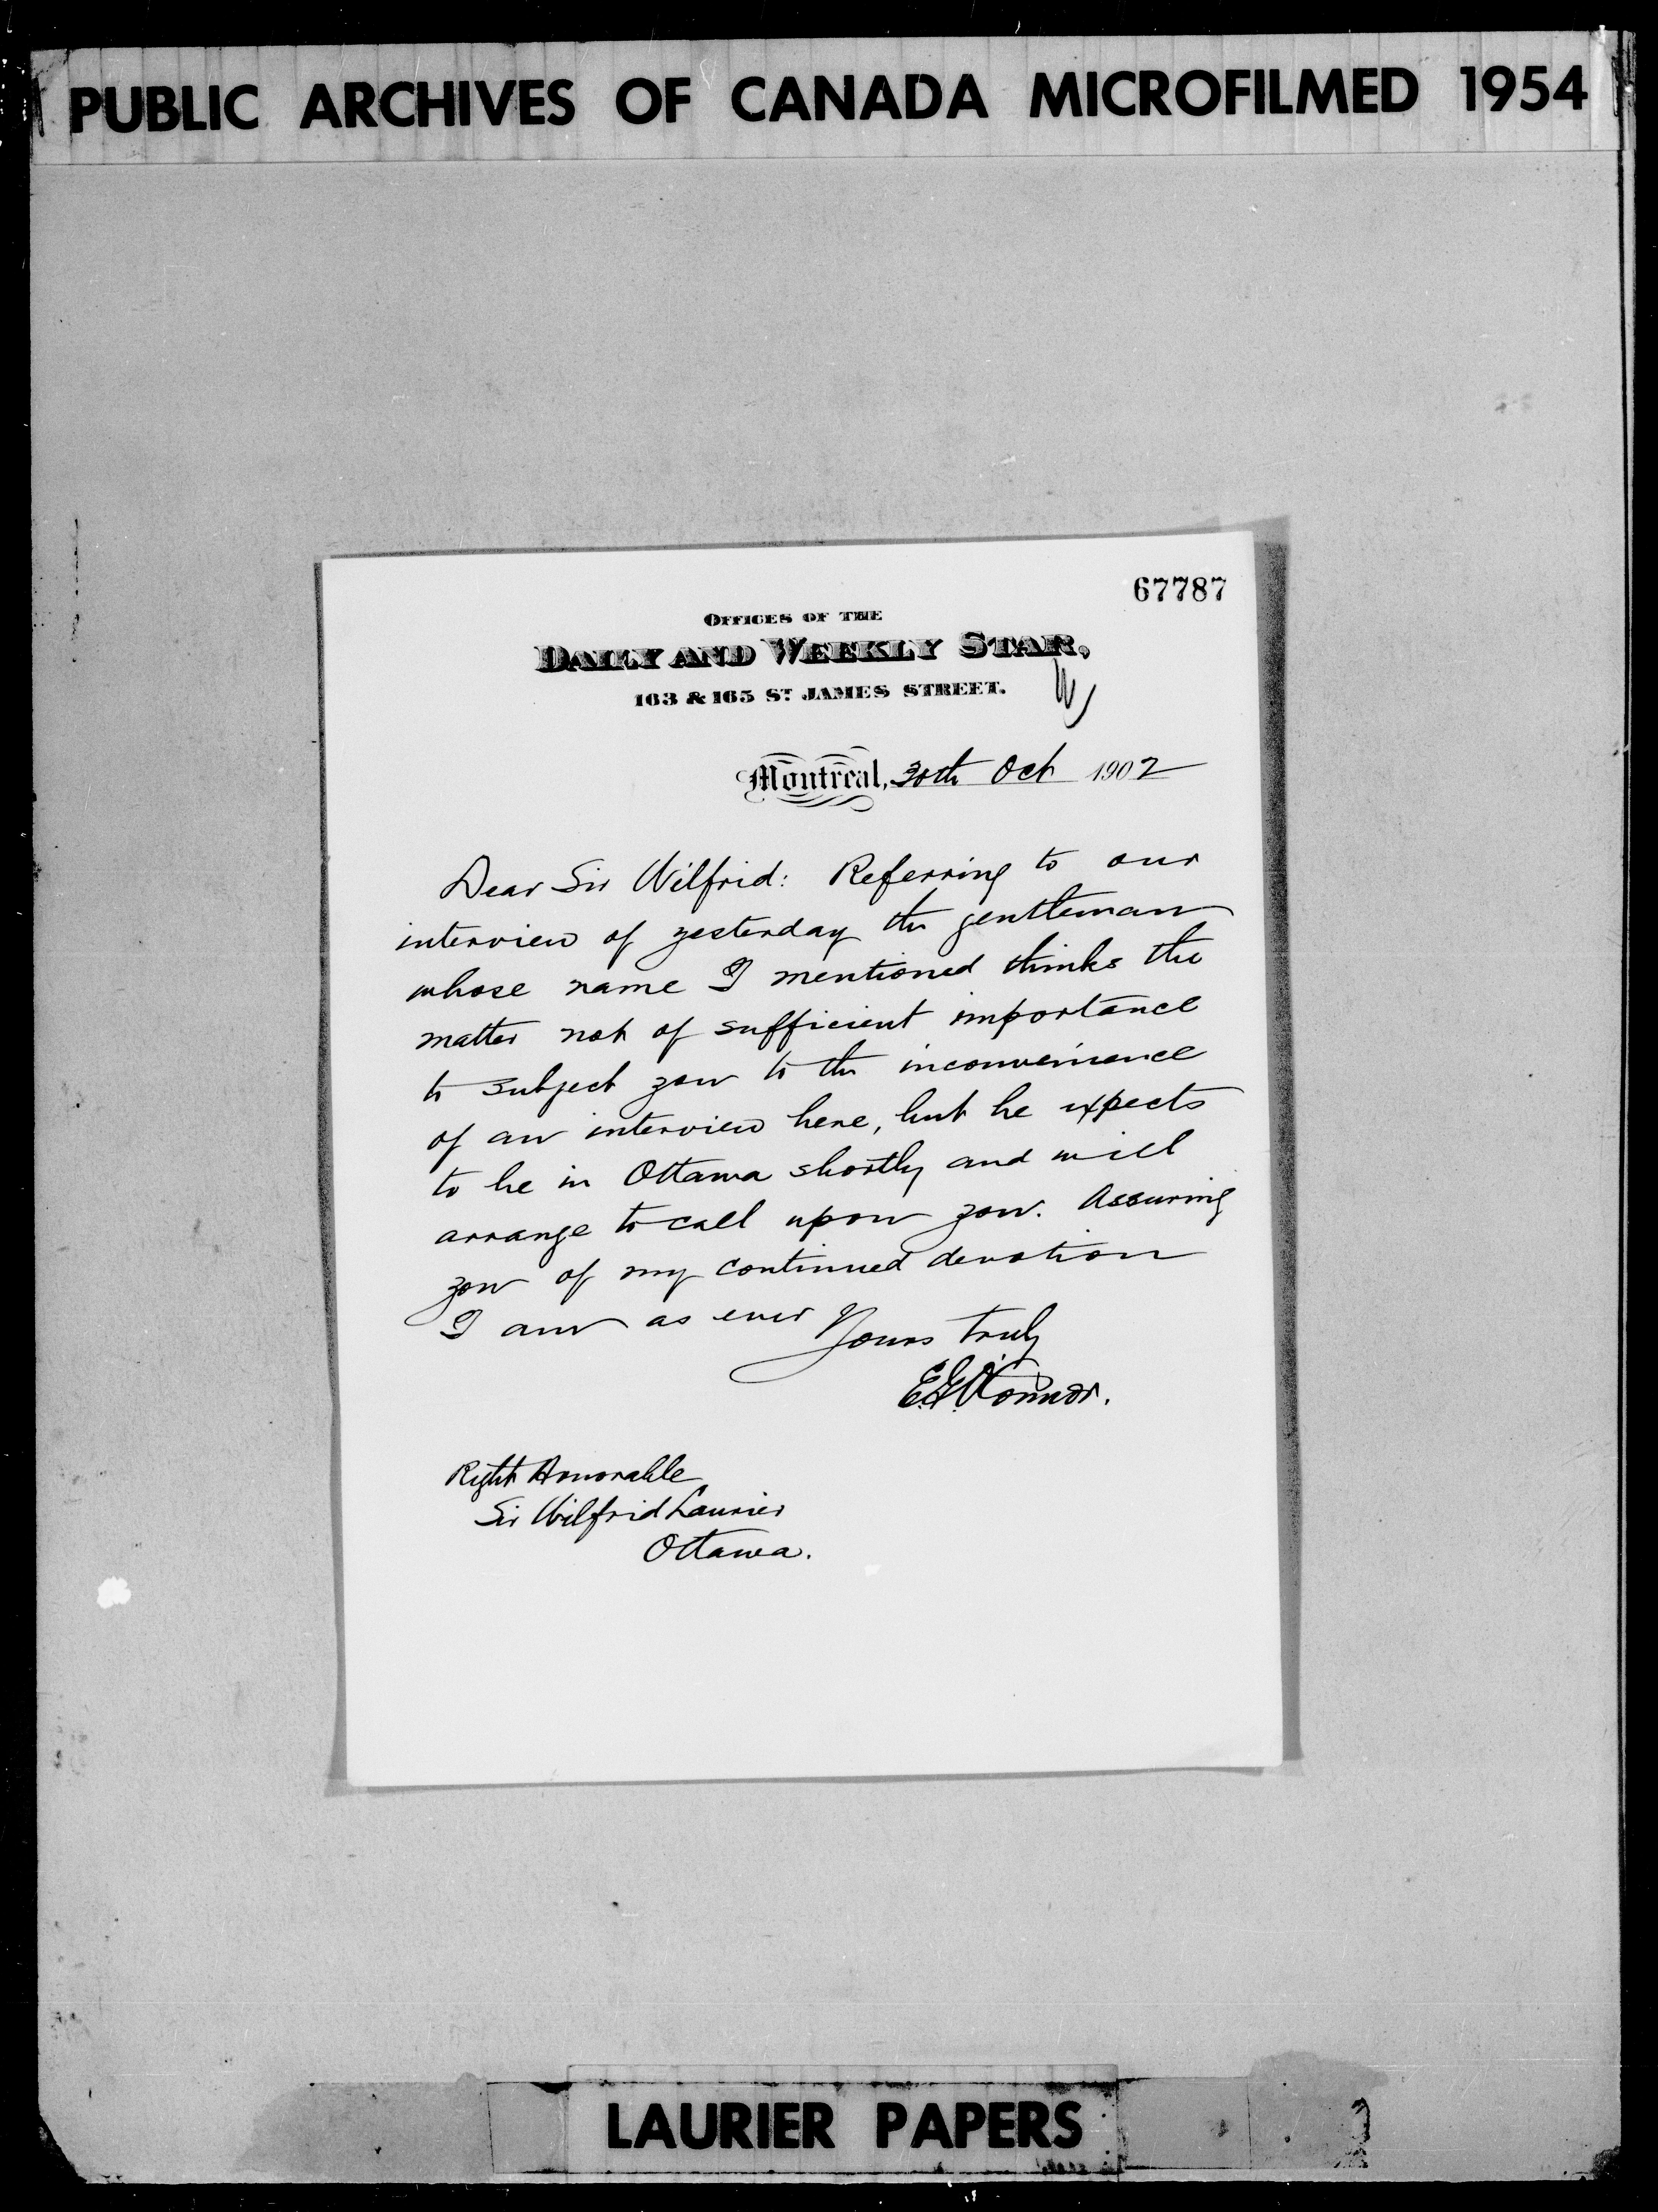 PUBLIC ARCHIVES OF CANADA MICROFILMED 1954
67787
OFFICES OF THE
DAILY AND WEEKLY STAR,
163 & 165 ST JAMES STREET.
Montreal, 30th Oct 1902
Dear Sir Wilfrid: Referring to our
interview of yesterday the gentleman
whose name I mentioned thinks the
matter not of sufficient importance
to subject you to the inconvenience
of an interview here, but he expects
to be in Ottawa shortly and will
arrange to call upon you. Assuring
you of my continued devotion
I am as ever Yours truly
E.G. O'Connor.
Right Honorable
Sir Wilfrid Laurier
Ottawa.
LAURIER PAPERS